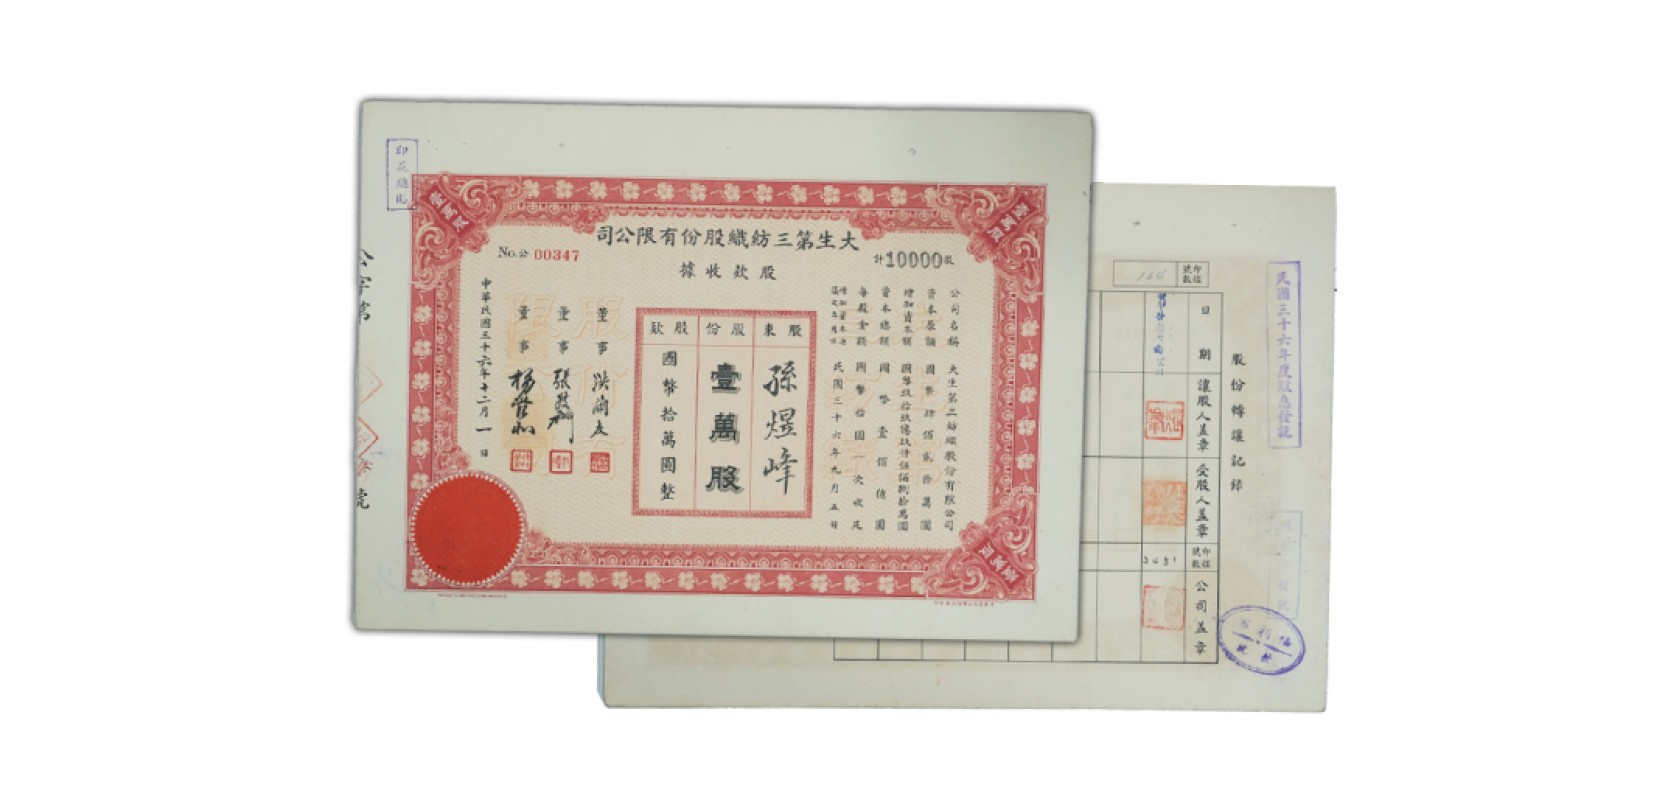 印花總貼
大生第三紡織股份有限公司
No.公 00347
計10000股
股款收據
公司名稱 大生第三紡織股份有限公司
資本原額 國幣肆佰貳拾萬圓
增加資本額 國幣玖拾玖億玖仟伍佰捌拾萬圓
資本總額 國幣壹佰億圓
每股金額 國幣拾圓一次收足
民國三十六年九月五日
股東 孫煜峰
股份 壹萬股
股款 國幣拾萬圓整
董事 洪蘭友
董事 張敬禮
董事 楊管北
中華民國三十六年十二月一日
壹萬股
壹萬股
壹萬股
民國三十六年度股息發訖
股份轉讓記錄
印鑑號數
日期
讓股人蓋章
受股人蓋章
印鑑號數
公司蓋章